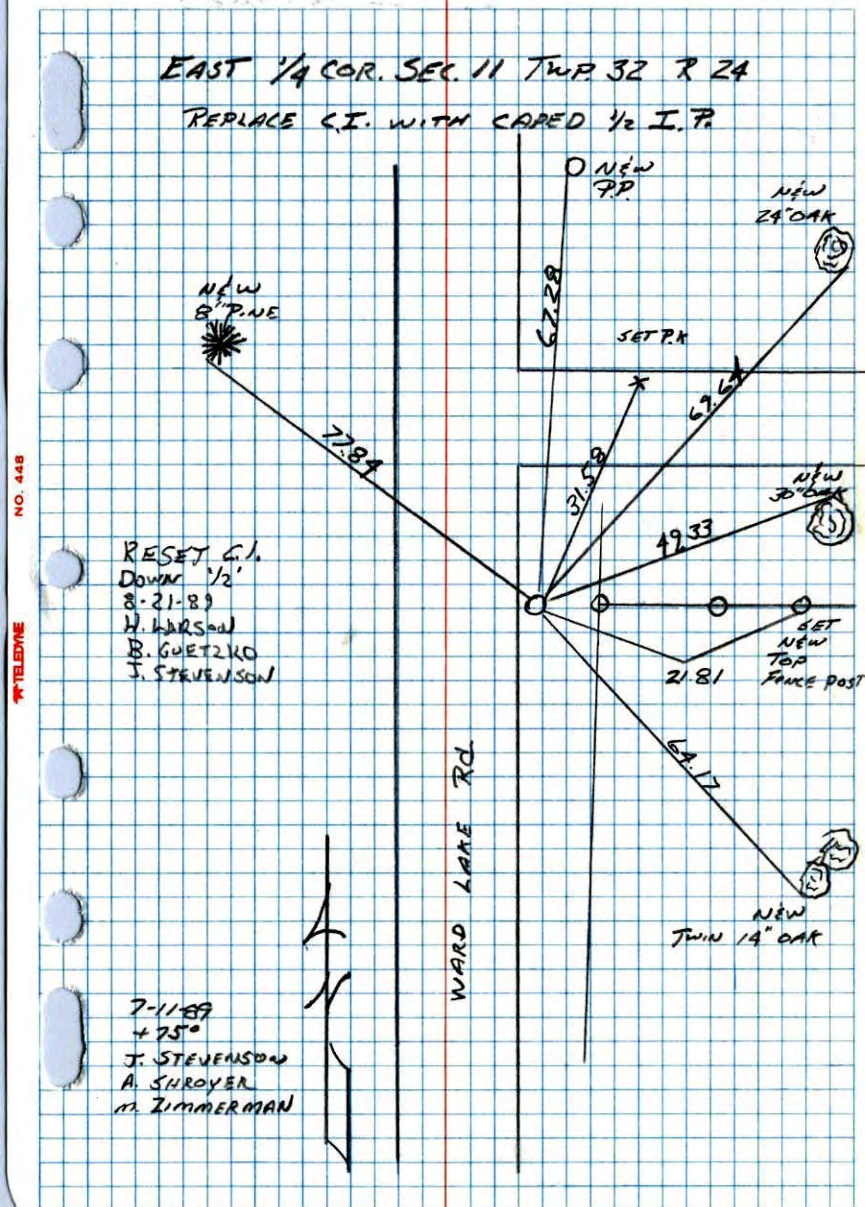 EAST 1/4 COR. SEC. 11 TWP. 32 R 24
REPLACE C.I. WITH CAPED 1/2 I.P.
NEW
P.P.
NEW
24" OAK
NEW
8" PINE
67.28
SET P.K
69.64
77.84
31.58
NEW
30" OAK
49.33
RESET C.I.
DOWN 1/2'
8-21-89
H. LARSON
B. GUETZKO
J. STEVENSON
SET
NEW
TOP
FENCE POST
21.81
64.17
WARD LAKE Rd
NEW
TWIN 14" OAK
N
7-11-89
+75°
J. STEVENSON
A. SHROYER
M. ZIMMERMAN
NO. 448
TELEDYNE